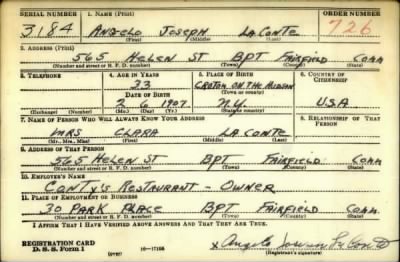 SERIAL NUMBER 1. NAME (Print) ORDER NUMBER
3184 ANGELO JOSEPH LA CONTE 726
(First) (Middle) (Last)
2. ADDRESS (Print)
565 HELEN ST BPT FAIRFIELD CONN
(Number and street or R. F. D. number) (Town) (County) (State)
3. TELEPHONE 4. AGE IN YEARS 5. PLACE OF BIRTH 6. COUNTRY OF CITIZENSHIP
33 CROTON ON THE HUDSON
DATE OF BIRTH (Town or county)
2 6 1907 N.Y. U.S.A
(Exchange) (Number) (Mo.) (Day) (Yr.) (State or country)
7. NAME OF PERSON WHO WILL ALWAYS KNOW YOUR ADDRESS 8. RELATIONSHIP OF THAT PERSON
MRS CLARA LA CONTE
(Mr., Mrs., Miss) (First) (Middle) (Last)
9. ADDRESS OF THAT PERSON
565 HELEN ST BPT FAIRFIELD CONN
(Number and street or R. F. D. number) (Town) (County) (State)
10. EMPLOYER'S NAME
CONTY'S RESTAURANT - OWNER
11. PLACE OF EMPLOYMENT OR BUSINESS
30 PARK PLACE BPT FAIRFIELD CONN
(Number and street or R. F. D. number) (Town) (County) (State)
I AFFIRM THAT I HAVE VERIFIED ABOVE ANSWERS AND THAT THEY ARE TRUE.
REGISTRATION CARD
D. S. S. Form 1 (over) 16-17105 x Angelo Joseph La Conte
(Registrant's signature)